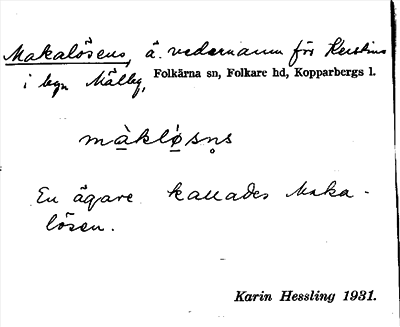 Makalösens, ä. vedernamn för Kerstins
i byn Mälby, Folkärna sn, Folkare hd, Kopparbergs l.
màkló̱sn̥s
En ägare kallades Maka-
lösen.
Karin Hessling 1931.